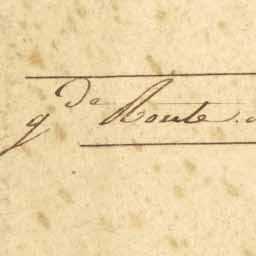 g.de Route.